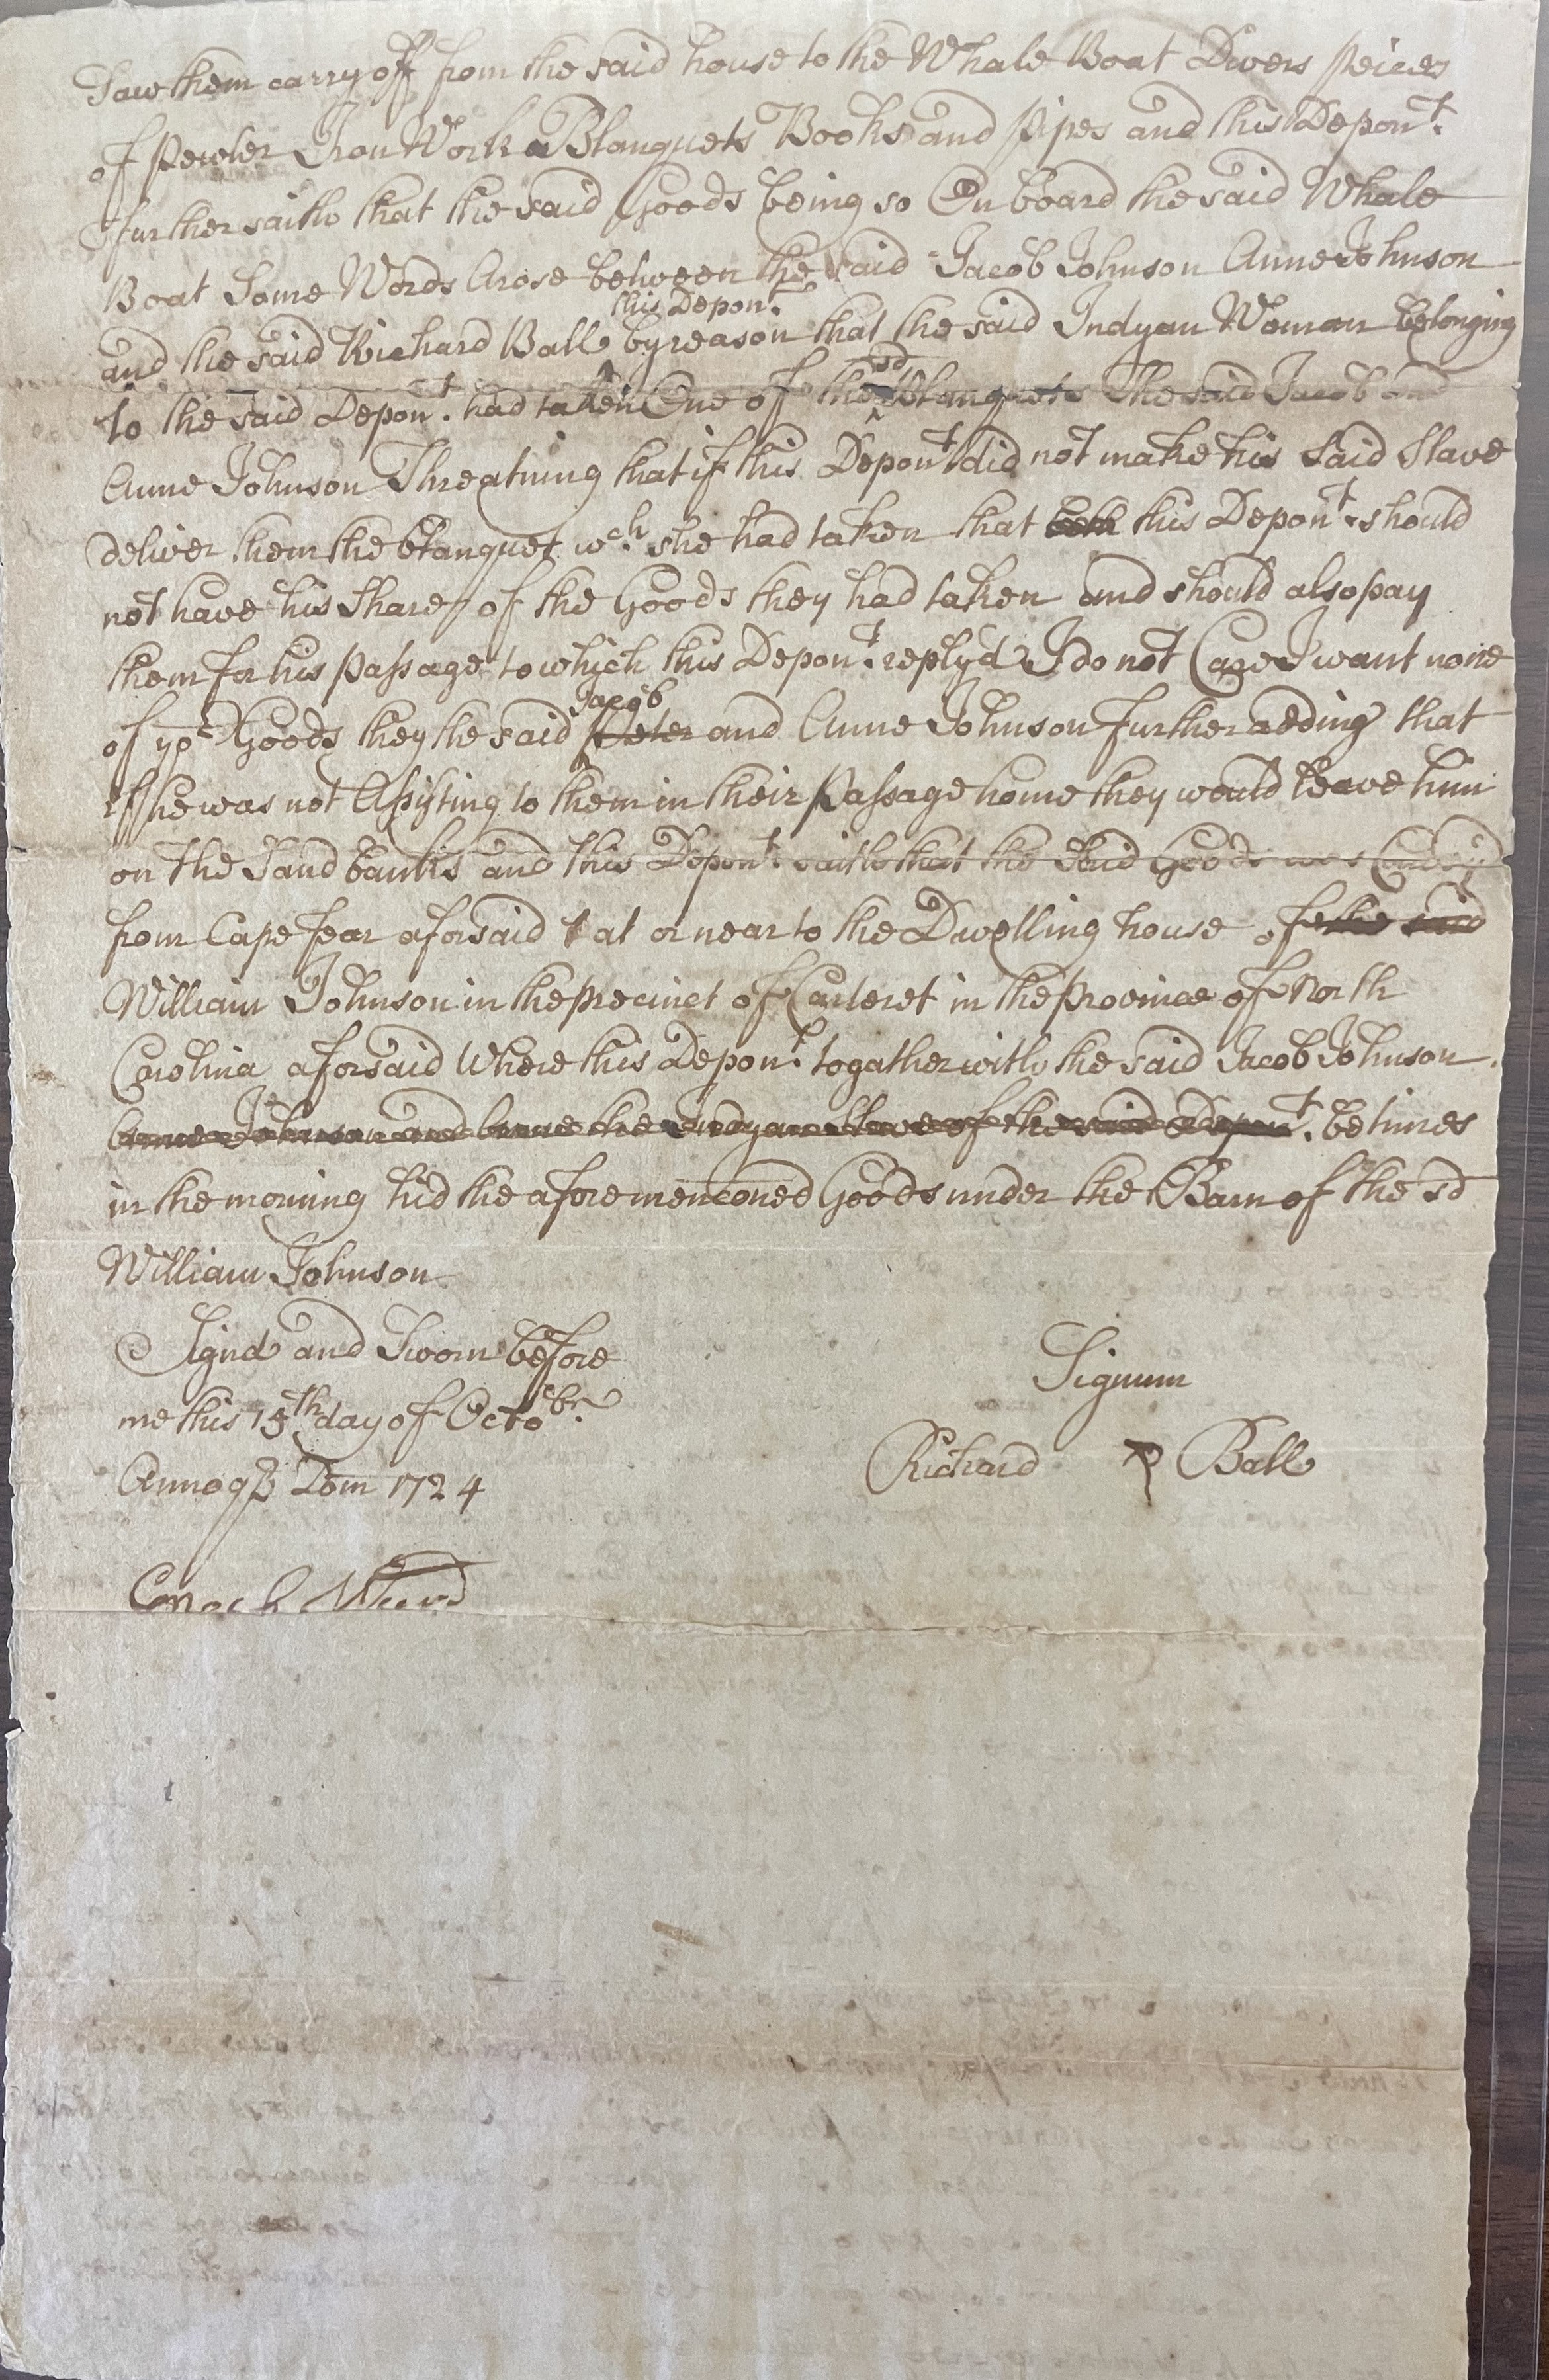 Saw them carry off from the said house to the Whale Boat Divers peices
of Pewter Iron Work Blanquets Books and Pipes and this Depont.
further saith that the said Goods being so On board the said Whale
Boat Some Words Arose between the said Jacob Johnson Anne Johnson
this Depont.
and the said Richard Ball by reason that the said Indyan Woman belonging
sd
to the said Depont. had taken One of the Blanquets the said Jacob and
Anne Johnson Threatning that if this Depont did not make his Said Slave
deliver them the blanquet wch. she had taken that this Depont. should
not have his Share of the Goods they had taken and should also pay
them for his passage to which this Depont. replyd I do not Care I want none
Jacob
of yor Goods they the said Peter and Anne Johnson further adding that
if he was not Assisting to them in their passage home they would leave him
on the Sand banks and this Depont. saith that the Said Goods were
from Cape fear aforsaid at or near to the Dwelling house of the said
William Johnson in the precinct of Carteret in the province of North
Carolina aforsaid Where this Depont. togather with the said Jacob Johnson
Anne Johnson and the Indyan Slave of the said Depont. betimes
in the morning hid the aforemenconed Goods under the Barn of the sd
William Johnson
Signd and Sworn before
me this 15th day of Octobr.
Annoqß Dom 1724
Signum
Richard Ball
Enoch Ward